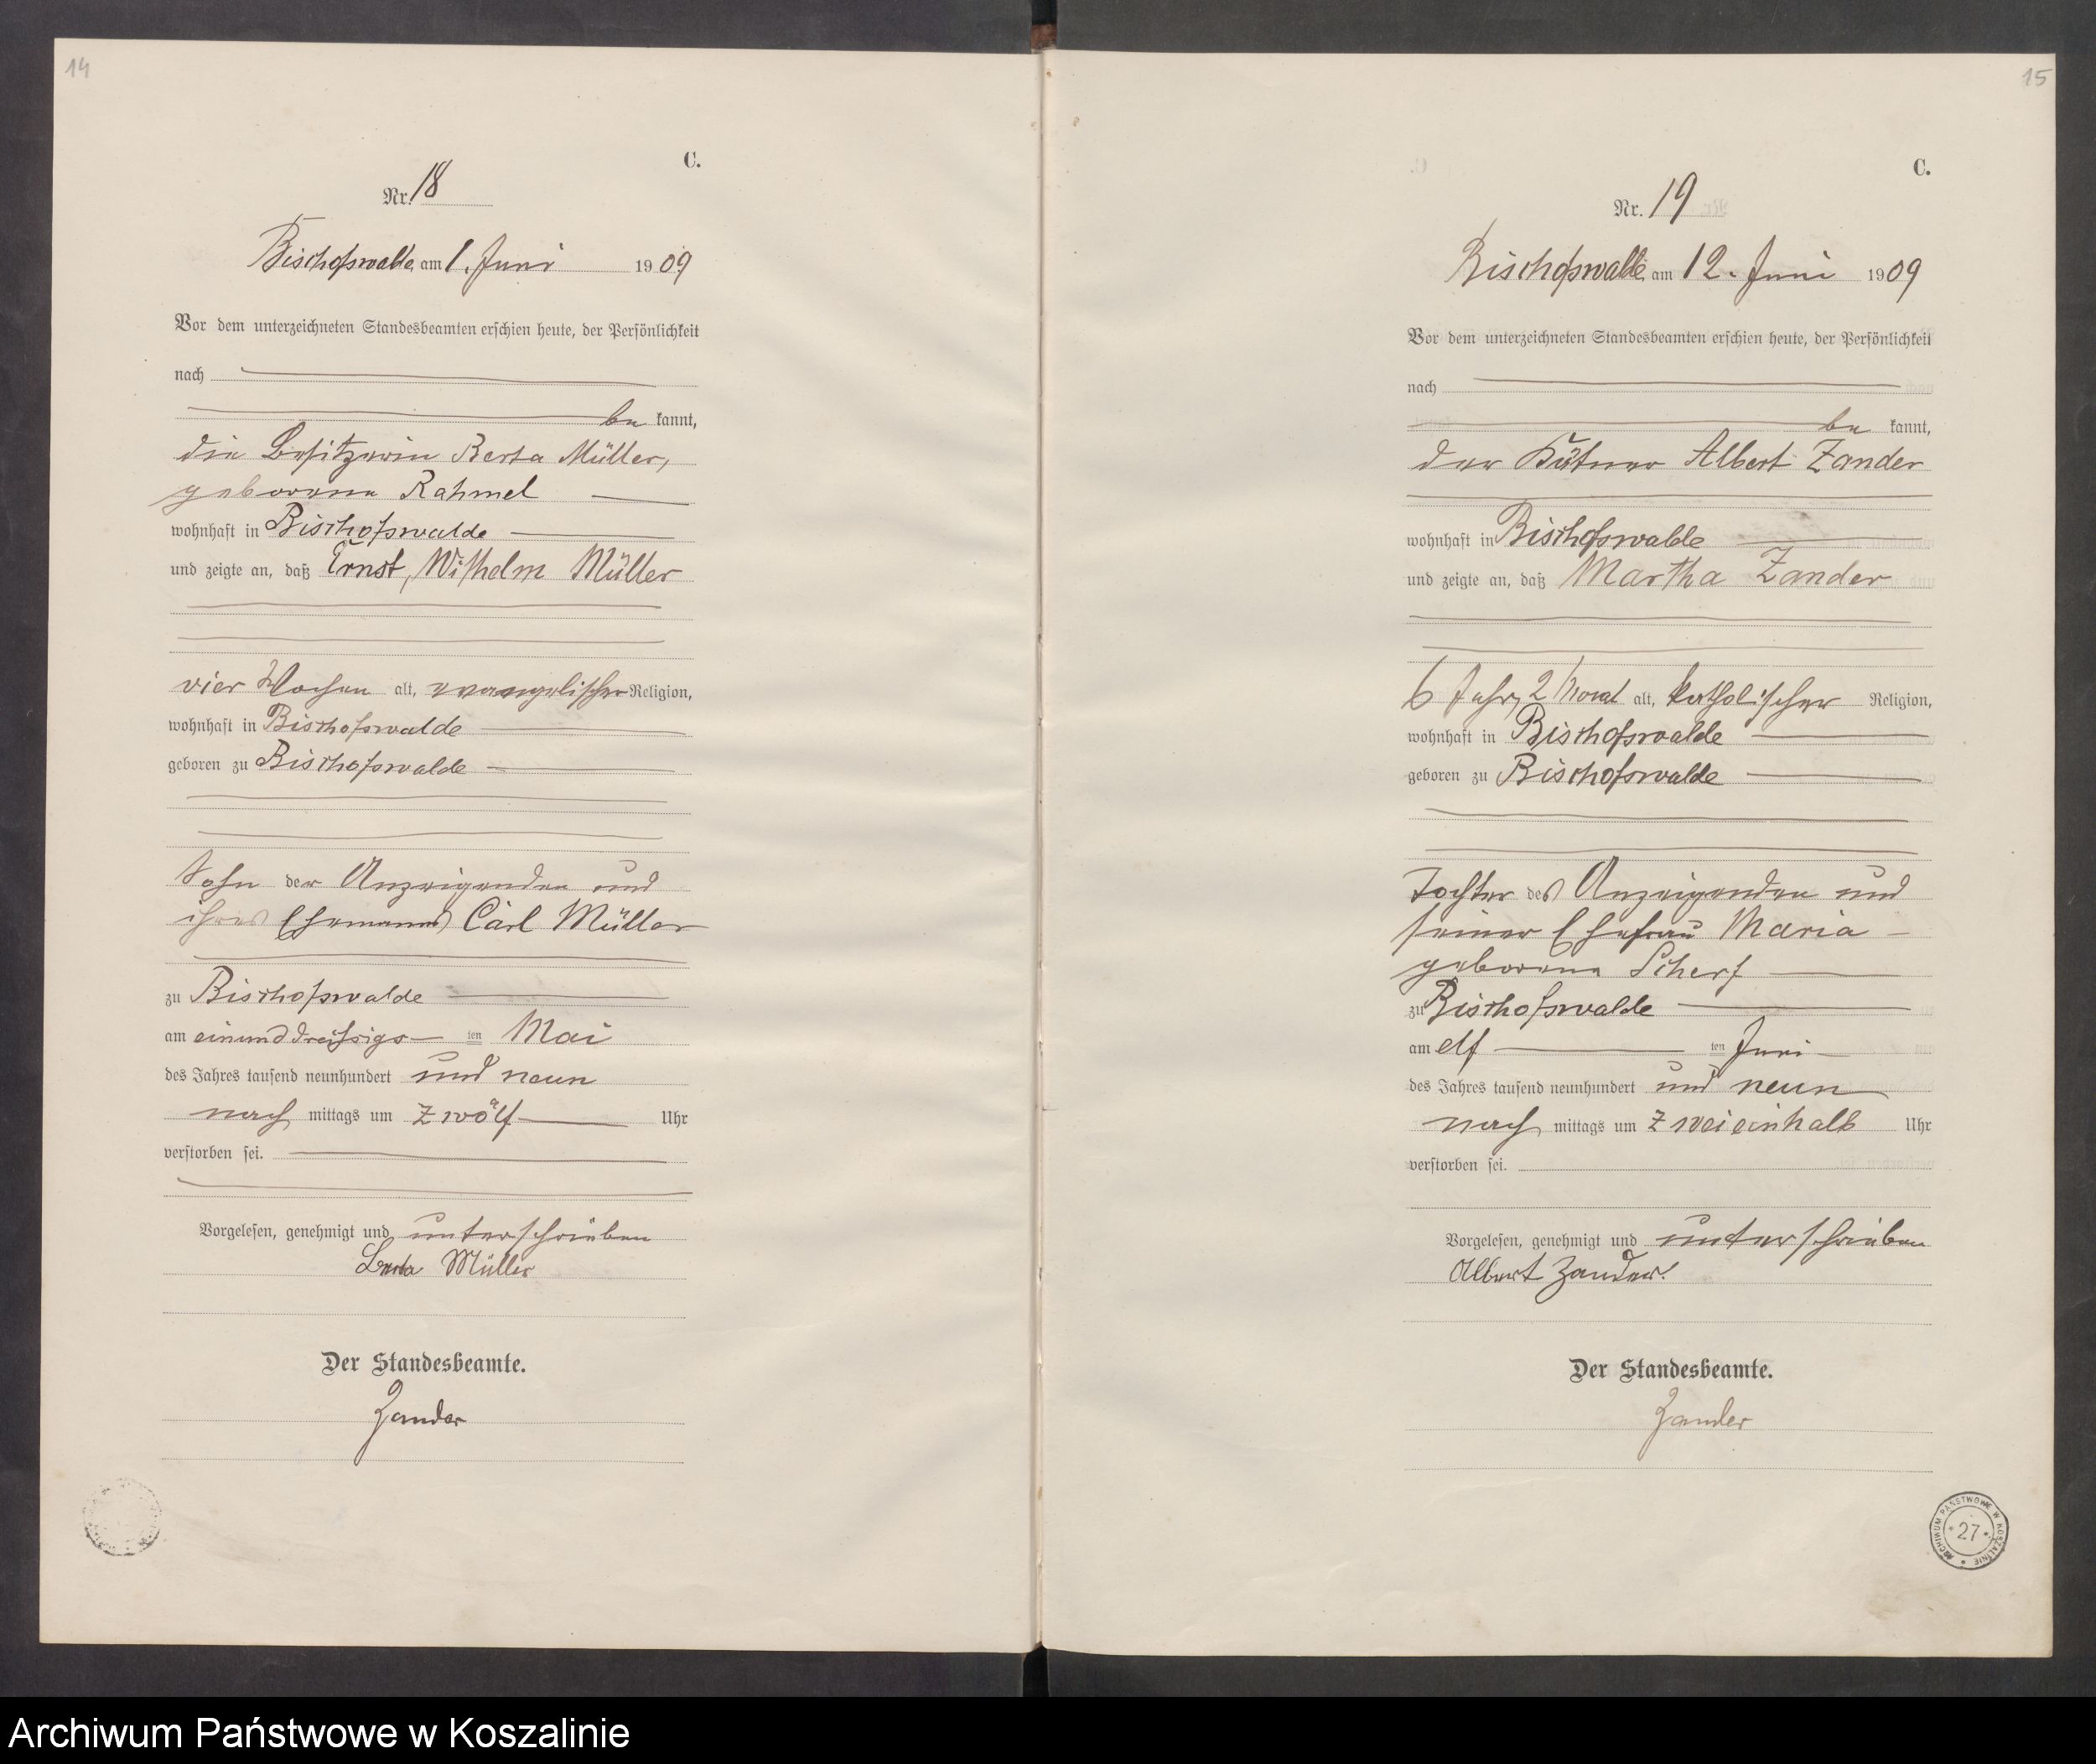 14
C.
Nr. 18
Bischofswalde am 1. Juni 1909
Vor dem unterzeichneten Standesbeamten erschien heute, der Persönlichkeit
nach
be kannt,
die Besitzerin Berta Müller,
geborene Rahmel
wohnhaft in Bischofswalde
und zeigte an, daß Ernst, Wilhelm Müller
vier Wochen alt, evangelischer Religion,
wohnhaft in Bischofswalde
geboren zu Bischofswalde
Sohn der Anzeigenden und
ihres Ehemanns Carl Müller
zu Bischofswalde
am einunddreißigs ten Mai
des Jahres tausend neunhundert und neun
nach mittags um zwölf Uhr
verstorben sei.
Vorgelesen, genehmigt und unterschrieben
Berta Müller
Der Standesbeamte.
Zander
15
C.
Nr. 19
Bischofswalde am 12. Juni 1909
Vor dem unterzeichneten Standesbeamten erschien heute, der Persönlichkeit
nach
be kannt,
der Kätner Albert Zander
wohnhaft in Bischofswalde
und zeigte an, daß Martha Zander
6 Jahr, 2 Monat alt, katholischer Religion,
wohnhaft in Bischofswalde
geboren zu Bischofswalde
Tochter des Anzeigenden und
seiner Ehefrau Maria
geborene Scherf
zu Bischofswalde
am elf ten Juni
des Jahres tausend neunhundert und neun
nach mittags um zweieinhalb Uhr
verstorben sei.
Vorgelesen, genehmigt und unterschrieben
Albert Zander.
Der Standesbeamte.
Zander
ARCHIWUM PAŃSTWOWE W KOSZALINIE
27
Archiwum Państwowe w Koszalinie